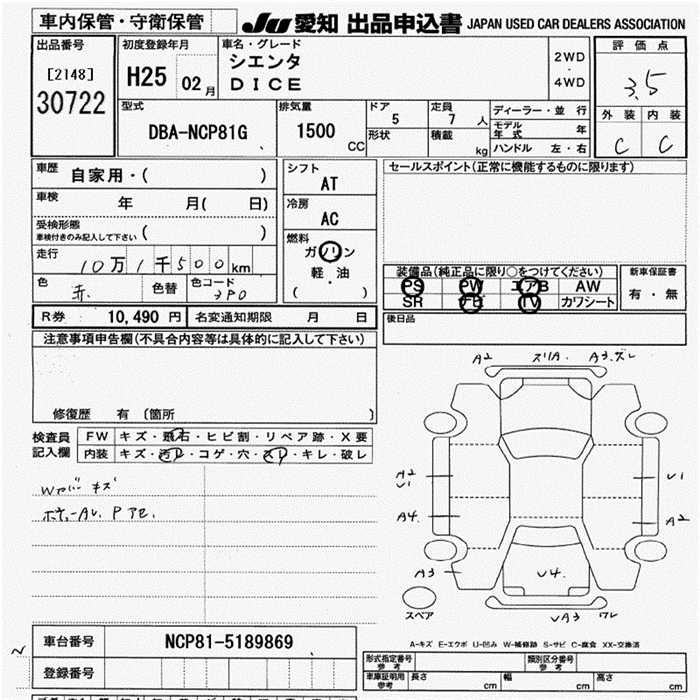 車内保管・守衛保管
JU 愛知 出品申込書 JAPAN USED CAR DEALERS ASSOCIATION
出品番号
[2148]
30722
初度登録年月
H25 02月
車名・グレード
シエンタ
DICE
2WD
・
4WD
評価点
3.5
外装 内装
C C
型式
DBA-NCP81G
排気量
1500
CC
ドア
5
定員
7人
形状
積載
kg
ディーラー・並行
モデル年式 年
ハンドル 左・右
車歴
自家用・( )
車検 年 月( 日)
受検形態
車検付きのみ記入して下さい ( )
走行
10万1千500km
色
赤
色替
色コード
3P0
シフト
AT
冷房
AC
燃料
ガソリン
軽・油
( )
セールスポイント(正常に機能するものに限ります)
装備品(純正品に限り○をつけてください)
PS PW エアB AW
SR TV カワシート
新車保証書
有・無
後日品
R券 10,490円 名変通知期限 月 日
注意事項申告欄(不具合内容等は具体的に記入して下さい)
修復歴 有 〔箇所 〕
検査員
記入欄
FW キズ・飛石・ヒビ割・リペア跡・X要
内装 キズ・汚レ・コゲ・穴・スレ・キレ・破レ
キズ
A2 A3.ズレ
A2
U1
U1
A4
A2
A3
U4.
スペア
UA3 ワレ
A-キズ E-エクボ U-凹み W-補修跡 S-サビ C-腐食 XX-交換済
車台番号 NCP81-5189869
登録番号
形式指定番号
参考
類別区分番号
参考
車庫証明用
参考
長さ cm 幅 cm 高さ cm